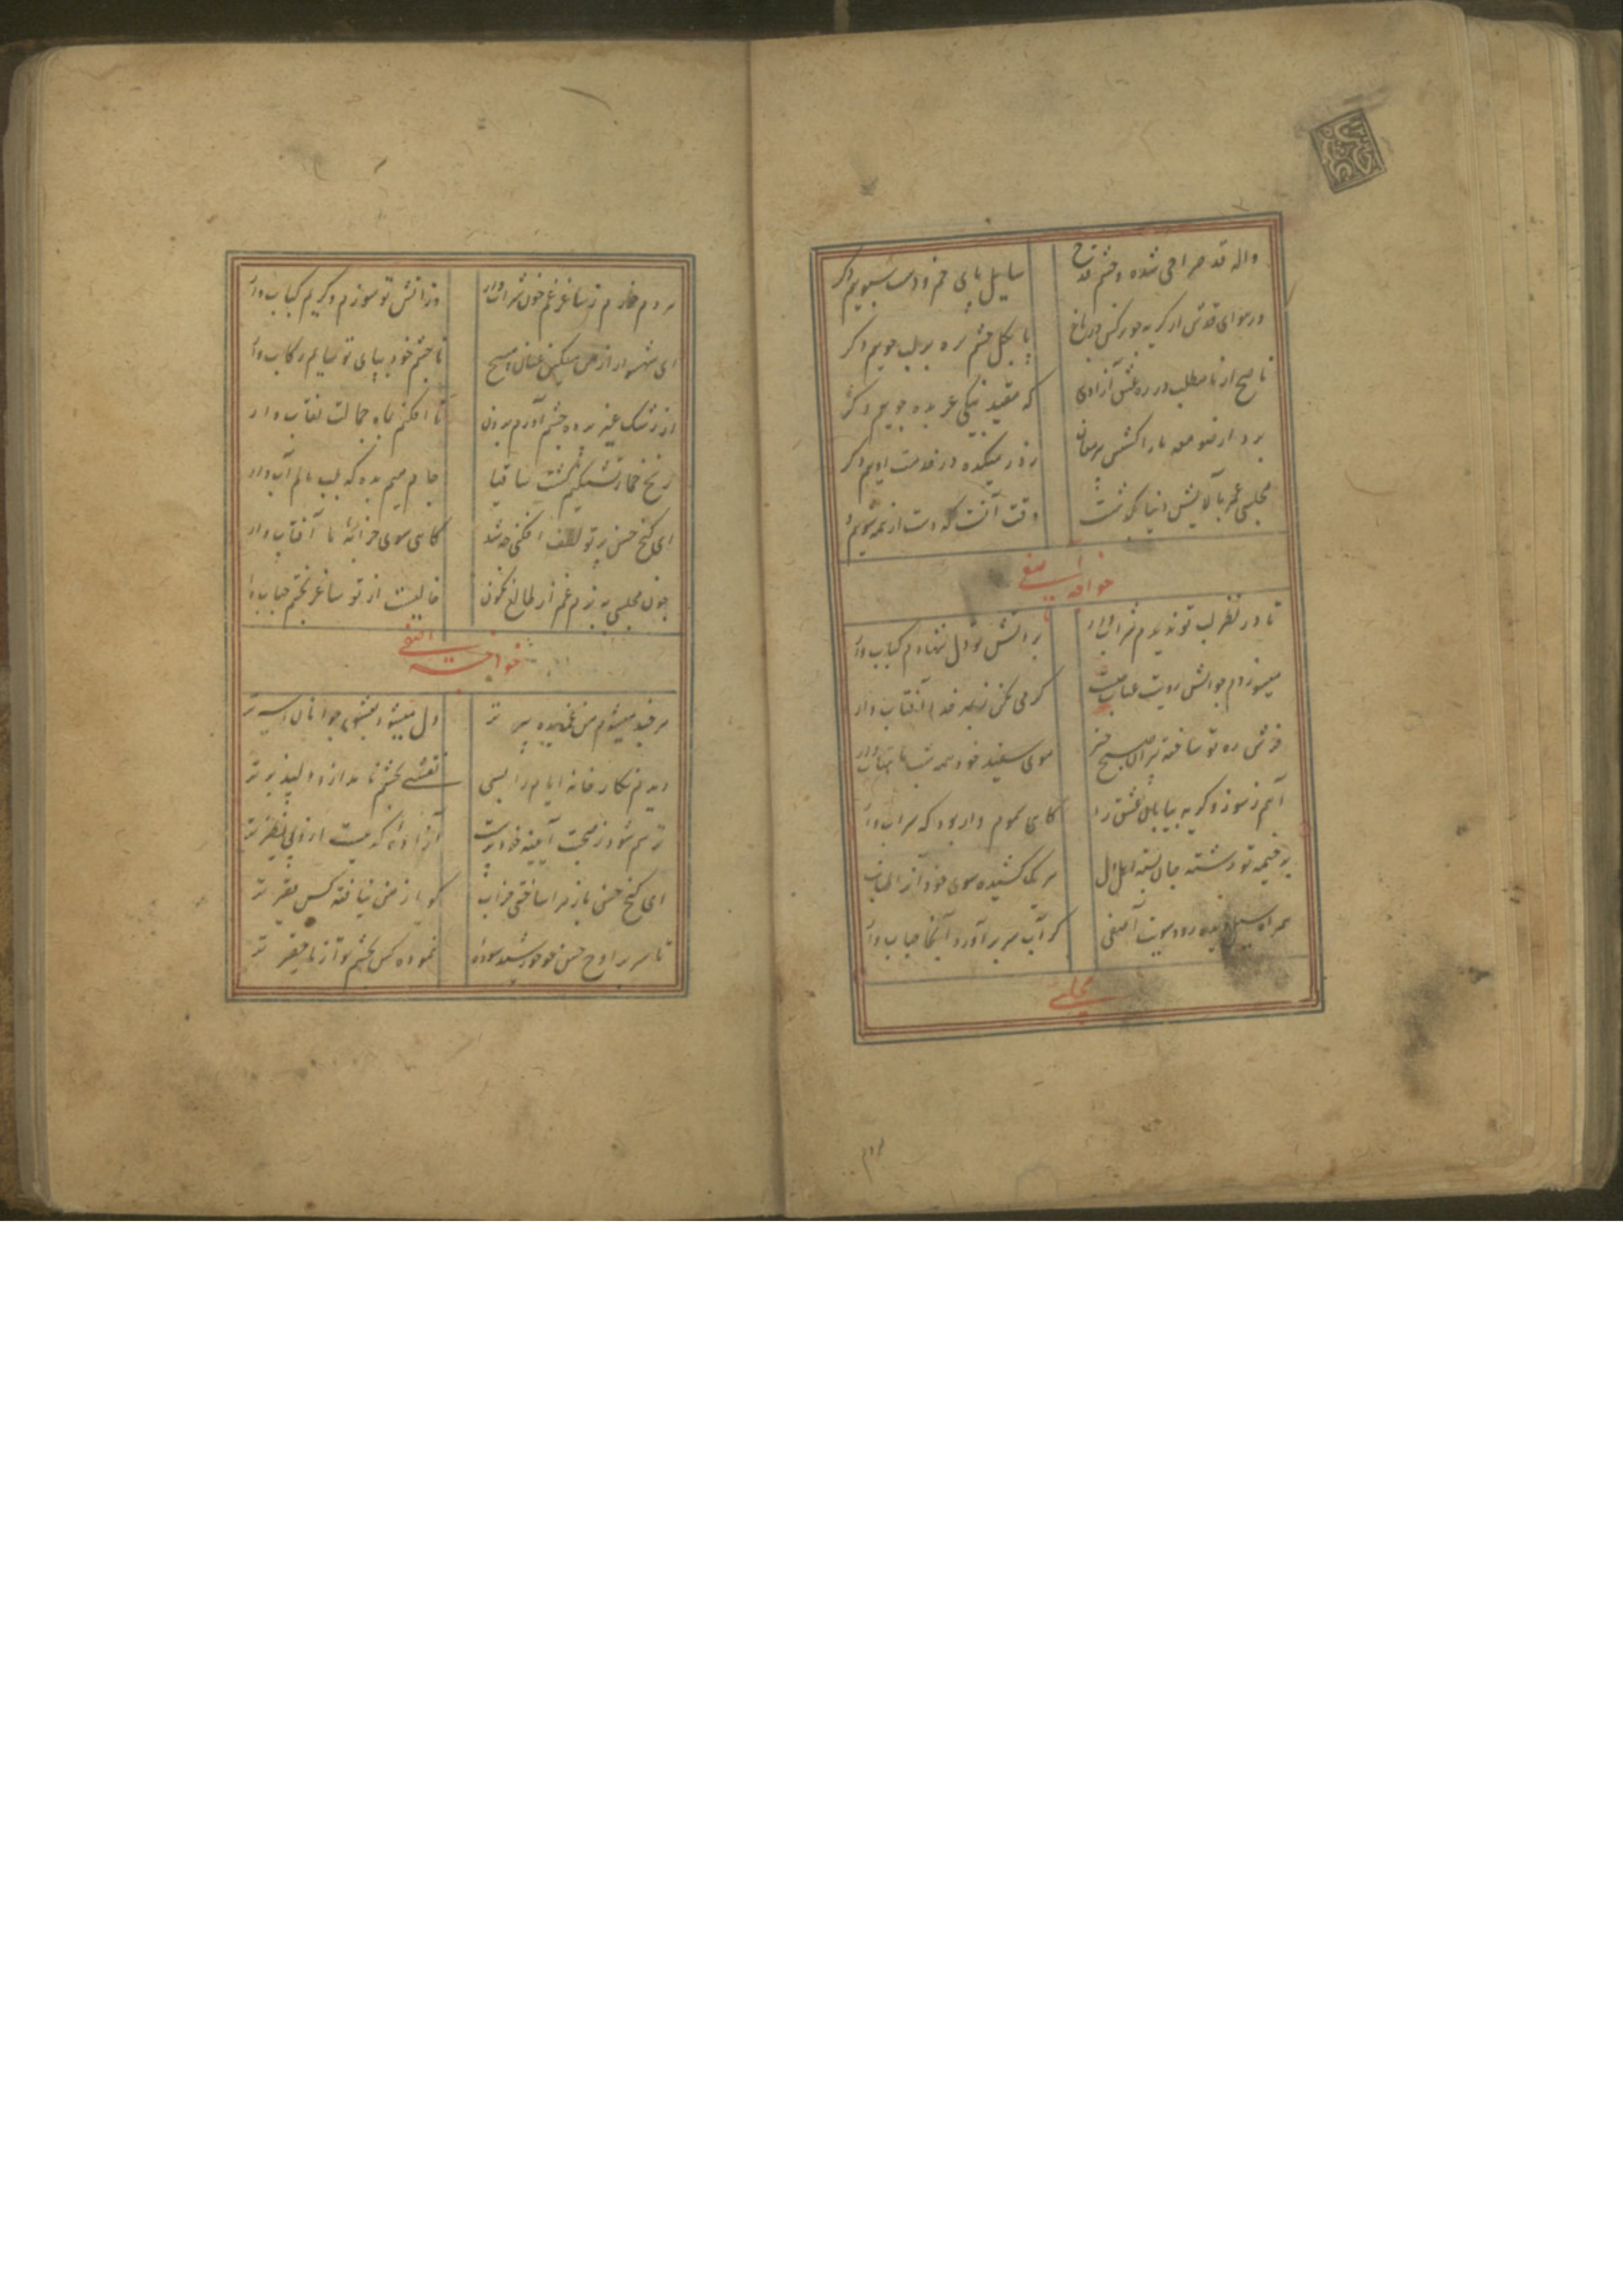 واله قد صراحی شده و چشم قدح
سایل پای خم و دست سبویم دکر
در هوای قدش از کریه چو نرکس در باغ
پا بکل چشم بره بر لب جویم دکر
ناصح از ما مطلب در ره عشق آزادی
که مقید نیکی عربده جویم دکر
برد از صومعه ما را کشش پیر مغان
روز میکده در خدمت اویم دکر
مجلسی عمر بآلایش دنیا بکذشت
وقت آنست که دست از همه شویم
خواجه آصفی
تا در نظر لب تو ندیدم شراب وار
بر آتش تو دل ننهادم کباب وار
میسوزدم چو آتش رویت عتاب چیست
کرمی مکن زیاده خدا را آفتاب وار
فرش ره تو ساخته پیران صبح خیز
موی سفید خود همه شب ماهتاب وار
آهم ز سوز و کریه بیابان عشق را
کاهی سموم وار بود که سراب وار
بر خیمه تو رشته جان بسته اهل دل
هر یک کشیده سوی خود آنرا طناب
همراه سیل دیده رود سویت آصفی
کز آب سر برآورد آنجا حباب وار
مجلسی
مردم خورم ز ساغر غم خون شراب وار
وز آتش تو سوزم و کریم کباب وار
ای شهسوار از من مسکین عنان مپیچ
تا چشم خود بپای تو سایم رکاب وار
از رشک غیر پرده چشم آورم برون
تا افکنم بماه جمالت نقاب وار
رنج خمار تشنکیم کشت ساقیا
جام میم بده که لب مالم آب وار
ای کنج حسن پرتو لطف افکنی چه شد
کاهی سوی خرابه ما آفتاب وار
چون مجلسی به بزم غم از طالع نکون
خالیست از تو ساغر بختم حباب وار
خواجه آصفی
هر چند میشوم من غمدیده پیر تر
دل میشود بعشق جوانان اسیر تر
دیدم نکارخانه ایام را بسی
نقشی بچشم نامد ازو دلپذیر تر
ترسم شود ز صحبت آیینه خود پرست
آنرا که نیست ازو بی نظیر تر
ای کنج حسن باز مرا ساختی خراب
کویا ز من نیافته کس فقیر تر
تا سر بر اوج حسن چو خورشید سوده
ننموده کس بچشم تو از ما حقیر تر